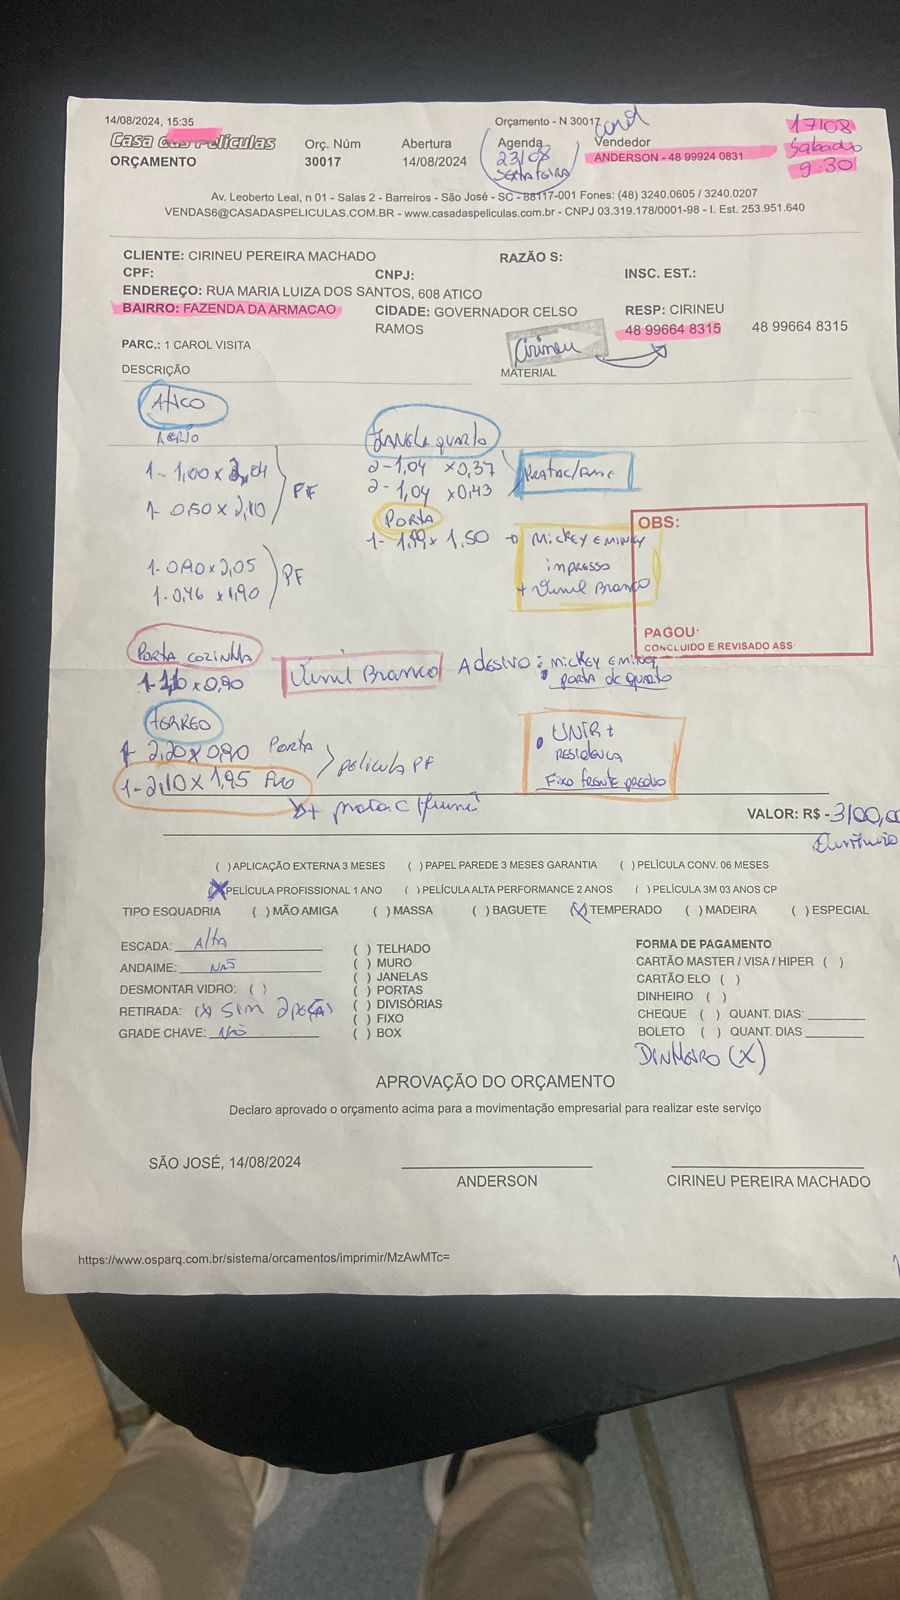 14/08/2024, 15:35
Orçamento - N 30017
Carol
17/08
Sabado
9:30
Casa das Películas
ORÇAMENTO
Orç. Núm
30017
Abertura
14/08/2024
Agenda
23/08
SEXTA FEIRA
Vendedor
ANDERSON - 48 99924 0831
Av. Leoberto Leal, n 01 - Salas 2 - Barreiros - São José - SC - 88117-001 Fones: (48) 3240.0605 / 3240.0207
VENDAS6@CASADASPELICULAS.COM.BR - www.casadaspeliculas.com.br - CNPJ 03.319.178/0001-98 - I. Est. 253.951.640
CLIENTE: CIRINEU PEREIRA MACHADO
RAZÃO S:
CPF:
CNPJ:
INSC. EST.:
ENDEREÇO: RUA MARIA LUIZA DOS SANTOS, 608 ATICO
BAIRRO: FAZENDA DA ARMACAO
CIDADE: GOVERNADOR CELSO
RAMOS
RESP: CIRINEU
48 99664 8315
48 99664 8315
Cirineu
PARC.: 1 CAROL VISITA
DESCRIÇÃO
MATERIAL
ATICO
1- 1,00 x 2,04
1- 0,50 x 2,10
PF
1- 0,90 x 2,05
1- 0,46 x 1,90
PF
JANELA quarto
2- 1,04 x 0,37
2- 1,04 x 0,43
PORTA
1- 1,99 x 1,50
MICKEY E MINEY
impresso
+ Vinil Branco
OBS:
PAGOU:
CONCLUIDO E REVISADO ASS:
PORTA COZINHA
1- 1,10 x 0,90
Vinil Branco
Adesivo: MICKEY E MINEY
PORTA DE QUARTO
TERREO
1- 2,20 x 0,90 PORTA
1- 2,10 x 1,95 Fixo
película PF
UNIR +
RESIDENCIA
Fixo frente predio
VALOR: R$ - 3100,00
( ) APLICAÇÃO EXTERNA 3 MESES ( ) PAPEL PAREDE 3 MESES GARANTIA ( ) PELÍCULA CONV. 06 MESES
(X) PELÍCULA PROFISSIONAL 1 ANO ( ) PELÍCULA ALTA PERFORMANCE 2 ANOS ( ) PELÍCULA 3M 03 ANOS CP
TIPO ESQUADRIA ( ) MÃO AMIGA ( ) MASSA ( ) BAGUETE (X) TEMPERADO ( ) MADEIRA ( ) ESPECIAL
ESCADA: Alta
ANDAIME: NÃO
DESMONTAR VIDRO: ( )
RETIRADA: (X) SIM 2 PEÇAS
GRADE CHAVE: NÃO
( ) TELHADO
( ) MURO
( ) JANELAS
( ) PORTAS
( ) DIVISÓRIAS
( ) FIXO
( ) BOX
FORMA DE PAGAMENTO
CARTÃO MASTER / VISA / HIPER ( )
CARTÃO ELO ( )
DINHEIRO ( )
CHEQUE ( ) QUANT. DIAS:
BOLETO ( ) QUANT. DIAS
DINHEIRO (X)
APROVAÇÃO DO ORÇAMENTO
Declaro aprovado o orçamento acima para a movimentação empresarial para realizar este serviço
SÃO JOSÉ, 14/08/2024
ANDERSON
CIRINEU PEREIRA MACHADO
https://www.osparq.com.br/sistema/orcamentos/imprimir/MzAwMTc=